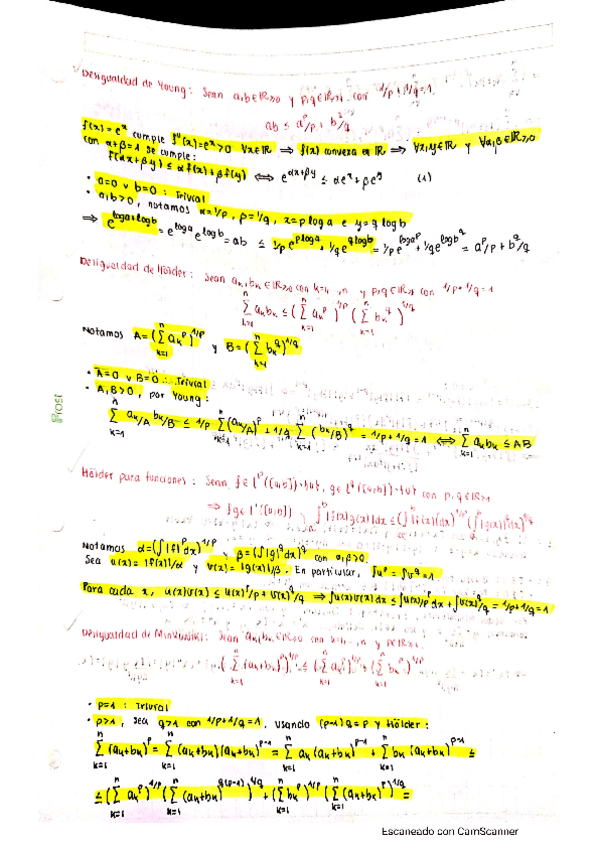 Desigualdad de Young: Sean a,b∈ℝ≥0 y p,q∈ℝ>1 con 1/p+1/q=1.
ab ≤ a^p/p + b^q/q
f(x)=e^x cumple f''(x)=e^x>0 ∀x∈ℝ ⟹ f(x) convexa en ℝ ⟹ ∀x,y∈ℝ y ∀α,β∈ℝ≥0
con α+β=1 se cumple:
f(αx+βy) ≤ αf(x)+βf(y) ⟺ e^{αx+βy} ≤ αe^x+βe^y (1)
• a=0 ∨ b=0 : Trivial
• a,b>0, notamos α=1/p, β=1/q, x=p log a e y=q log b
⟹ e^{log a+log b} = e^{log a} e^{log b} = ab ≤ 1/p e^{p log a} + 1/q e^{q log b} = 1/p e^{log a^p} + 1/q e^{log b^q} = a^p/p + b^q/q
Desigualdad de Hölder: Sean a_k,b_k∈ℝ≥0 con k=1,..,n y p,q∈ℝ>1 con 1/p+1/q=1
∑_{k=1}^n a_k b_k ≤ (∑_{k=1}^n a_k^p)^{1/p} (∑_{k=1}^n b_k^q)^{1/q}
Notamos A=(∑_{k=1}^n a_k^p)^{1/p} y B=(∑_{k=1}^n b_k^q)^{1/q}
• A=0 ∨ B=0 : Trivial
• A,B>0, por Young:
∑_{k=1}^n a_k/A b_k/B ≤ 1/p ∑_{k=1}^n (a_k/A)^p + 1/q ∑_{k=1}^n (b_k/B)^q = 1/p+1/q=1 ⟺ ∑_{k=1}^n a_k b_k ≤ AB
Hölder para funciones: Sean f∈L^p([a,b])∖{0}, g∈L^q([a,b])∖{0} con p,q∈ℝ>1
⟹ fg∈L^1([a,b]) y ∫|f(x)g(x)|dx ≤ (∫|f(x)|^p dx)^{1/p} (∫|g(x)|^q dx)^{1/q}
Notamos α=(∫|f|^p dx)^{1/p} y β=(∫|g|^q dx)^{1/q} con α,β>0.
Sea u(x)=|f(x)|/α y v(x)=|g(x)|/β. En particular, ∫u^p=∫v^q=1
Para cada x, u(x)v(x) ≤ u(x)^p/p + v(x)^q/q ⟹ ∫u(x)v(x)dx ≤ ∫u(x)^p/p dx + ∫v(x)^q/q = 1/p+1/q=1
Desigualdad de Minkowski: Sean a_k,b_k∈ℝ≥0 con k=1,..,n y p∈ℝ≥1
(∑_{k=1}^n (a_k+b_k)^p)^{1/p} ≤ (∑_{k=1}^n a_k^p)^{1/p} + (∑_{k=1}^n b_k^p)^{1/p}
• p=1 : Trivial
• p>1, sea q>1 con 1/p+1/q=1, usando (p-1)q=p y Hölder:
∑_{k=1}^n (a_k+b_k)^p = ∑_{k=1}^n (a_k+b_k)(a_k+b_k)^{p-1} = ∑_{k=1}^n a_k(a_k+b_k)^{p-1} + ∑_{k=1}^n b_k(a_k+b_k)^{p-1} ≤
≤ (∑_{k=1}^n a_k^p)^{1/p} (∑_{k=1}^n (a_k+b_k)^{q(p-1)})^{1/q} + (∑_{k=1}^n b_k^p)^{1/p} (∑_{k=1}^n (a_k+b_k)^p)^{1/q} =
Escaneado con CamScanner